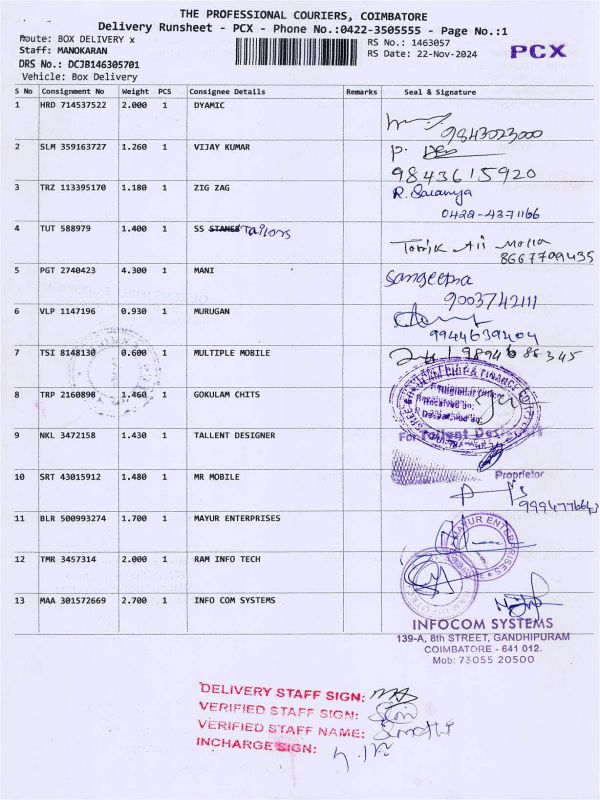 THE PROFESSIONAL COURIERS, COIMBATORE
Delivery Runsheet - PCX - Phone No.:0422-3505555 - Page No.:1
Route: BOX DELIVERY x
Staff: MANOKARAN
DRS No.: DCJB146305701
Vehicle: Box Delivery
RS No.: 1463057
RS Date: 22-Nov-2024
PCX
S No Consignment No Weight PCS Consignee Details Remarks Seal & Signature
1 HRD 714537522 2.000 1 DYAMIC
9843023000
2 SLM 359163727 1.260 1 VIJAY KUMAR
9843615920
3 TRZ 113395170 1.180 1 ZIG ZAG R. Saranya
0422-4371166
4 TUT 588979 1.400 1 SS STANES Tailors
8667709435
5 PGT 2740423 4.300 1 MANI Sangeetha
9003742111
6 VLP 1147196 0.930 1 MURUGAN
9944639404
7 TSI 8148130 0.600 1 MULTIPLE MOBILE
8 TRP 2160898 1.460 1 GOKULAM CHITS
9 NKL 3472158 1.430 1 TALLENT DESIGNER
For Tallent Designers
Proprietor
10 SRT 43015912 1.480 1 MR MOBILE
11 BLR 500993274 1.700 1 MAYUR ENTERPRISES
MAYUR ENTERPRISES
12 TMR 3457314 2.000 1 RAM INFO TECH
13 MAA 301572669 2.700 1 INFO COM SYSTEMS
INFOCOM SYSTEMS
139-A, 8th STREET, GANDHIPURAM
COIMBATORE - 641 012.
Mob: 73055 20500
DELIVERY STAFF SIGN:
VERIFIED STAFF SIGN:
VERIFIED STAFF NAME:
INCHARGE SIGN: